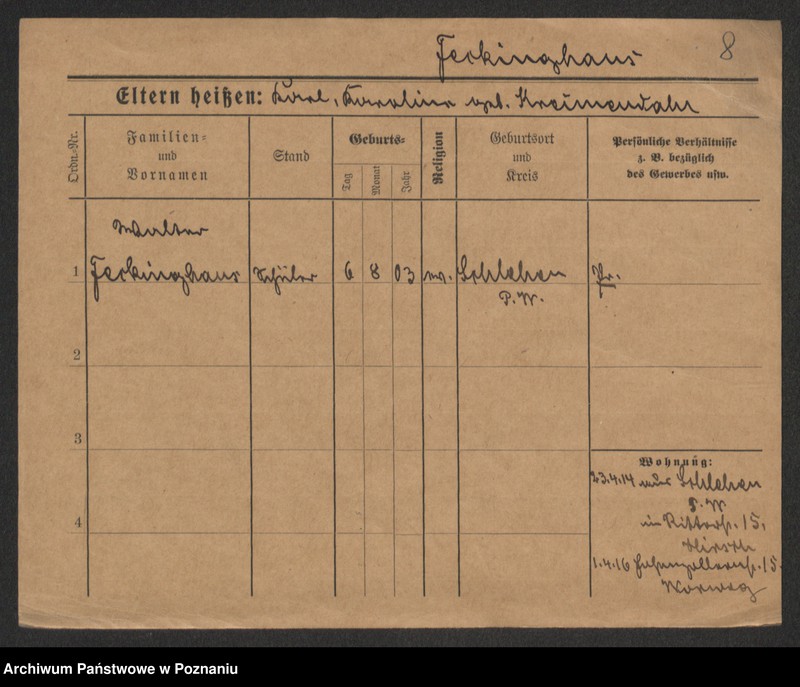 Feckinghaus 8
Eltern heißen: Karl, Karoline geb. Kreimendahl
Ordn.-Nr.
Familien-
und
Vornamen
Stand
Geburts-
Tag
Monat
Jahr
Religion
Geburtsort
und
Kreis
Persönliche Verhältnisse
z. B. bezüglich
des Gewerbes usw.
Walter
1 Feckinghaus Schüler 6 8 03 ev. Schlehen Pr.
P.W.
2
3
4
Wohnung:
23.4.14 aus Schlehen
P.W
in Ritterst. 15.
Hirsch
1.4.16 Hohenzollernst. 15.
Worwag
Archiwum Państwowe w Poznaniu